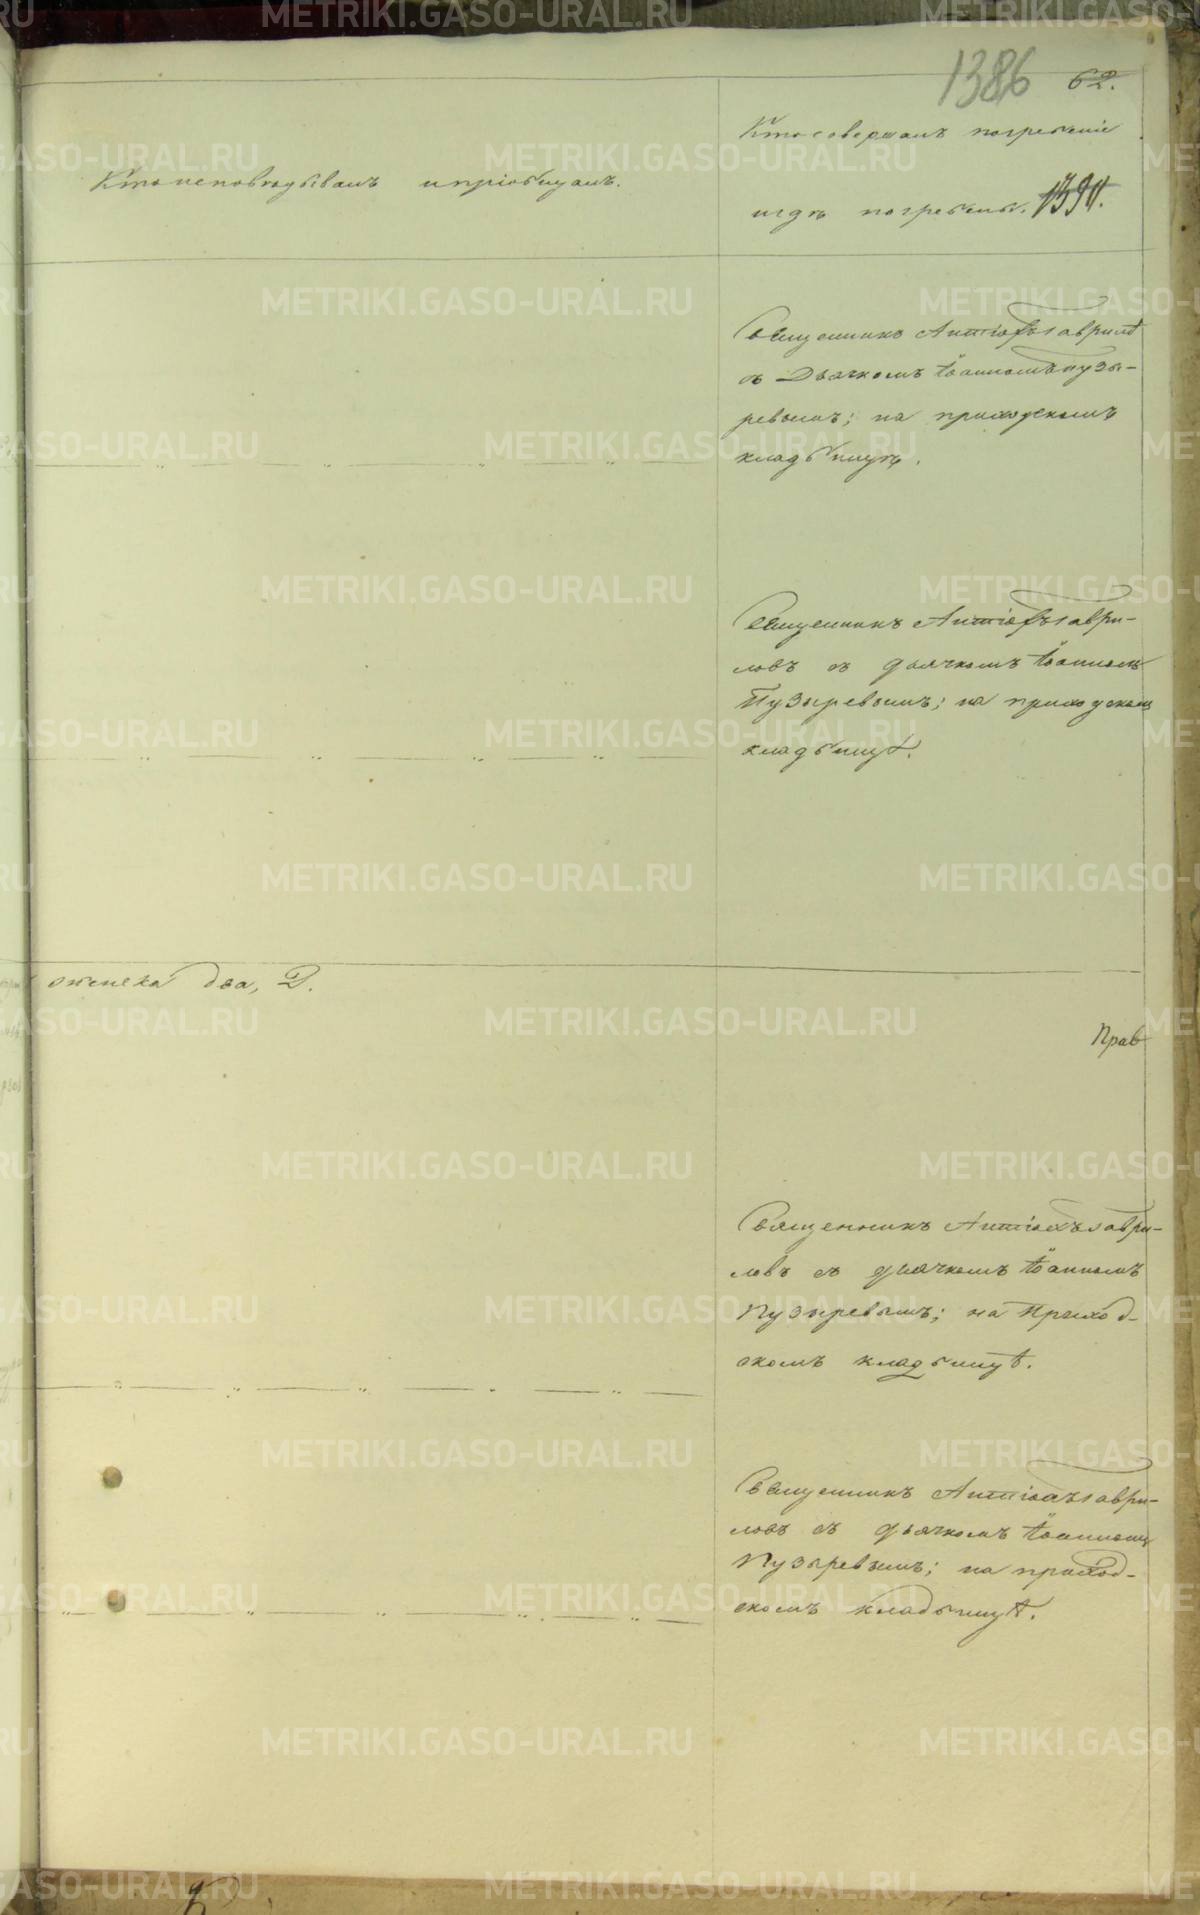 1386 62.
Кто исповѣдывалъ и пріобщалъ.
Кто совершалъ погребеніе
и гдѣ погребены. 1390.
Священникъ Антіохъ Гаврилов
съ Дьячкомъ Іоанномъ Пузы-
ревымъ; на приходскомъ
кладбищѣ.
Священникъ Антіохъ Гаври-
ловъ съ дьячкомъ Іоанномъ
Пузыревымъ; на приходскомъ
кладбищѣ.
женска два, 2.
Прав
Священникъ Антіохъ Гаври-
ловъ съ дьячкомъ Іоанномъ
Пузыревымъ; на Приход-
скомъ кладбищѣ.
Священникъ Антіохъ Гаври-
ловъ съ дьячкомъ Іоанномъ
Пузыревымъ; на приход-
скомъ кладбищѣ.
METRIKI.GASO-URAL.RU